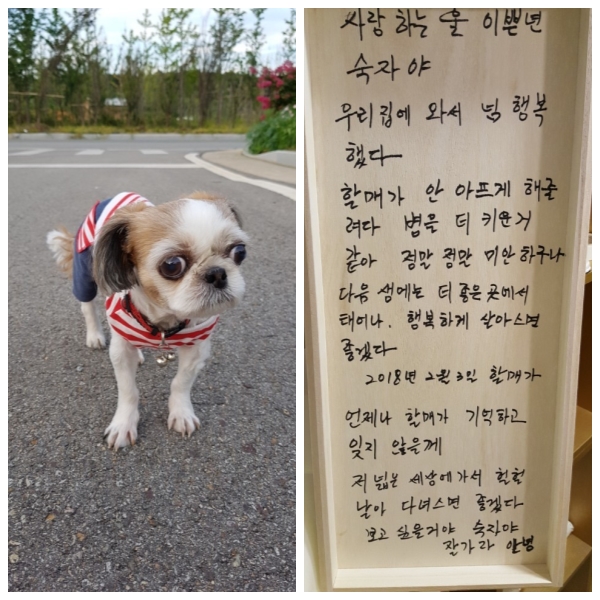 사랑 하는 울 이쁜년
숙자야
우리집에 와서 넘 행복
했다
할매가 안 아프게 해줄
려다 병을 더 키운거
같아 정말 정말 미안 하구나
다음 생에는 더 좋은 곳에서
태어나. 행복하게 살아스면
좋겠다
2018년 2월 3일 할매가
언제나 할매가 기억하고
잊지 않을께
저 넓은 세상에 가서 훨훨
날아 다녀스면 좋겠다
보고 싶을거야 숙자야
잘가라 안녕